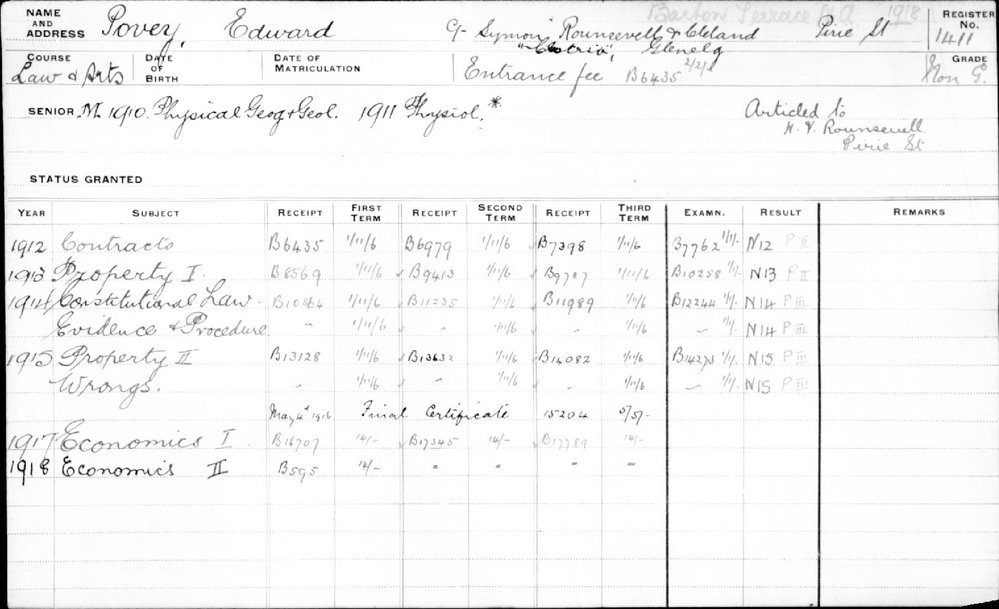 Barton Terrace N.A. 1918
NAME AND ADDRESS Povey, Edward C/- Symon, Rounsevell & Cleland Pirie St REGISTER No. 1411
Glenelg
COURSE Law & Arts DATE OF BIRTH DATE OF MATRICULATION Entrance fee B6435 2/2/- GRADE Non G.
SENIOR M. 1910. Physical Geog & Geol. 1911 Physiol.*
Articled to
H. V. Rounsevell
Pirie St
STATUS GRANTED
YEAR SUBJECT RECEIPT FIRST TERM RECEIPT SECOND TERM RECEIPT THIRD TERM EXAMN. RESULT REMARKS
1912 Contracts B6435 1/11/6 B6979 1/11/6 B7398 1/11/6 B7762 1/1/- N12 P II
1913 Property I. B8569 1/11/6 B9413 1/11/6 B9787 1/11/6 B10258 1/1/- N13 P II
1914 Constitutional Law. B10864 1/11/6 B11235 1/11/6 B11989 1/11/6 B12244 1/1/- N14 P III
Evidence & Procedure " 1/11/6 " 1/11/6 " 1/11/6 " 1/1/- N14 P III
1915 Property II B13128 1/11/6 B13632 1/11/6 B14082 1/11/6 B14273 1/1/- N15 P III
Wrongs. " 1/11/6 " 1/11/6 " 1/11/6 " 1/1/- N15 P III
May 4th 1916 Final Certificate 15204 5/5/-
1917 Economics I. B16707 14/- B17345 14/- B17789 14/-
1918 Economics II B595 14/- " " " "